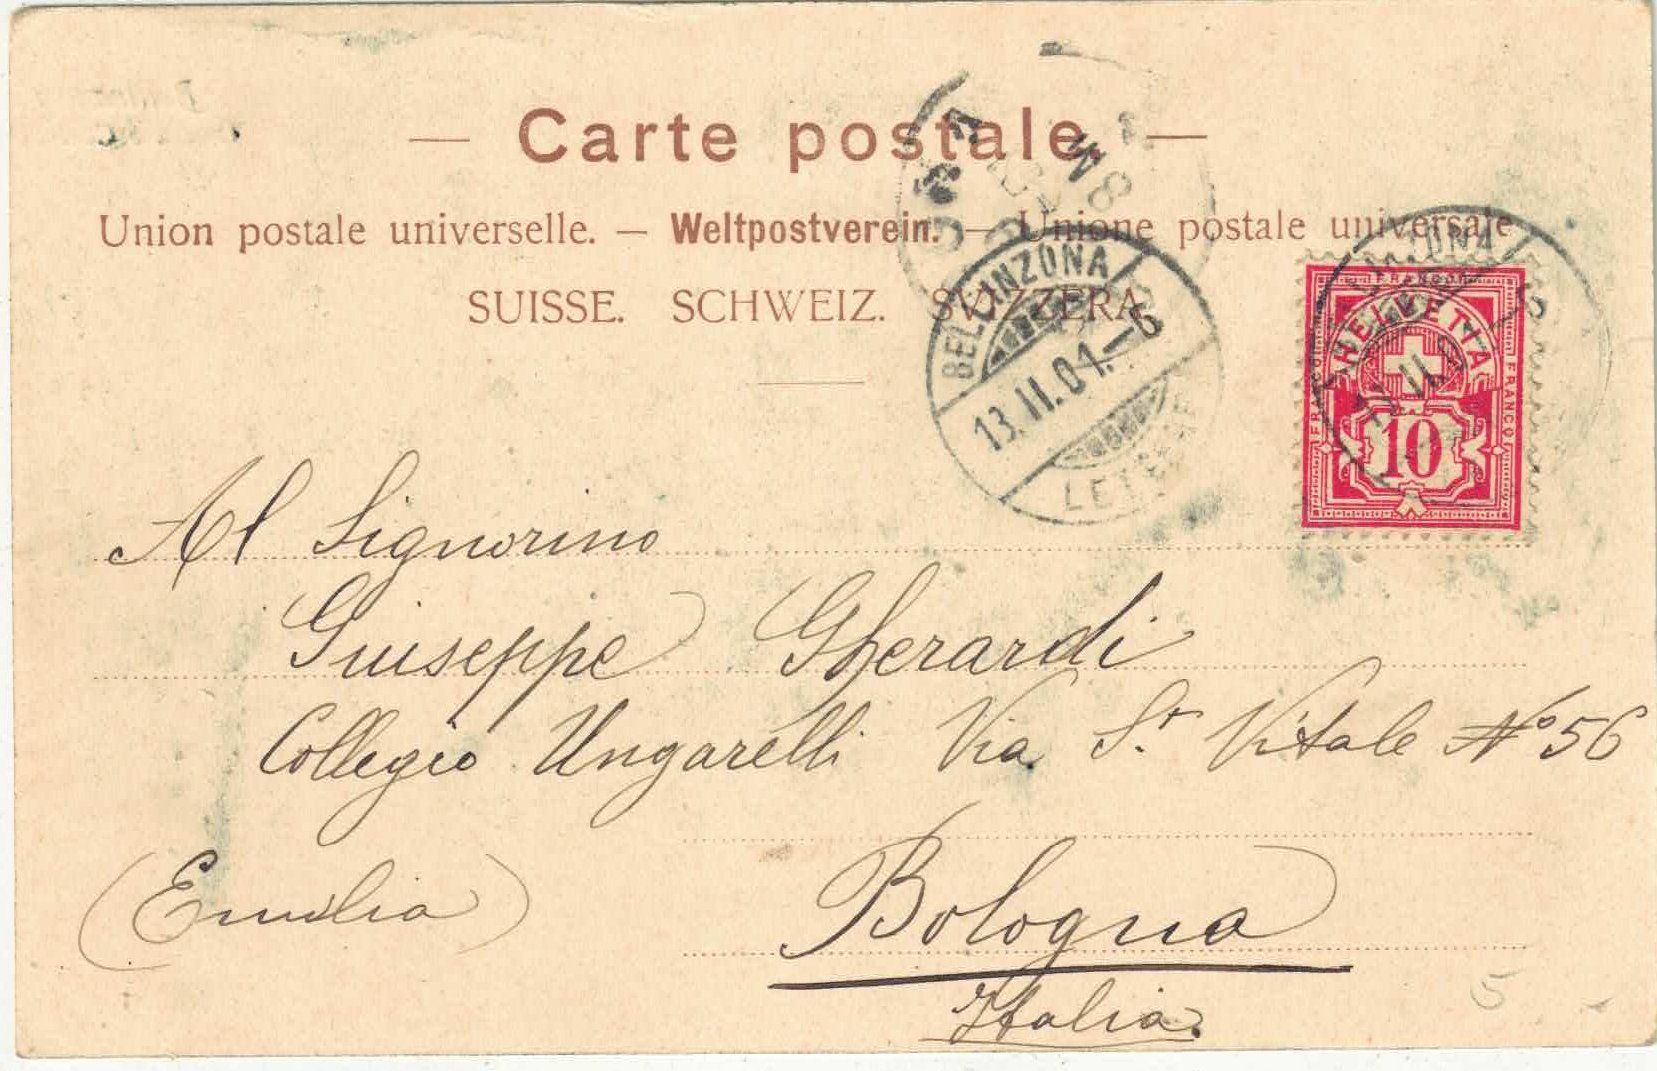 — Carte postale. —
Union postale universelle. — Weltpostverein. — Unione postale universale
SUISSE. SCHWEIZ. SVIZZERA.
BELLINZONA
13.II.01.–6
LETTERE
FRANCO
HELVETIA
FRANCO
FRANCO
10
Al Signorino
Giuseppe Gherardi
Collegio Ungarelli Via St. Vitale No 56
(Emilia) Bologna
Italia.
5